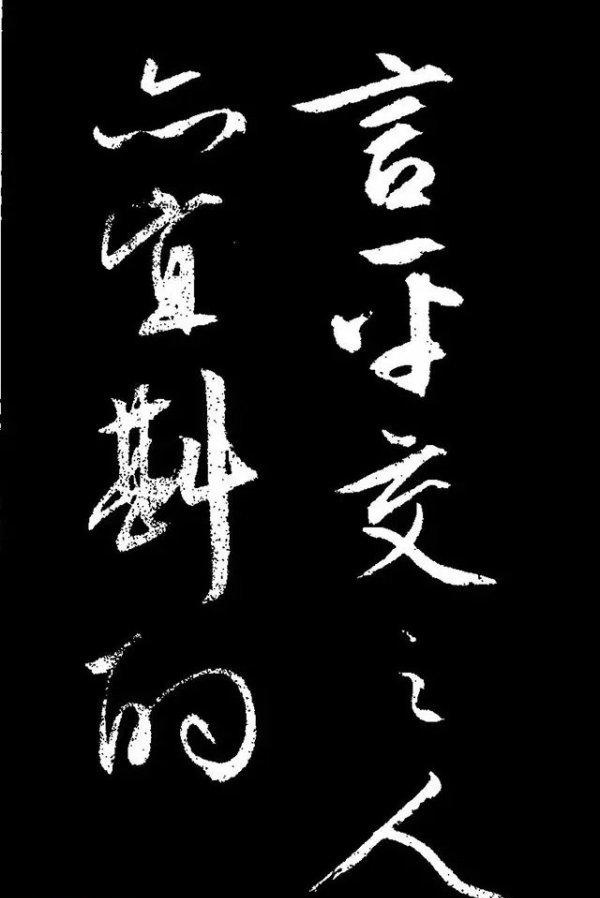 言平交之人
亦宜斟酌